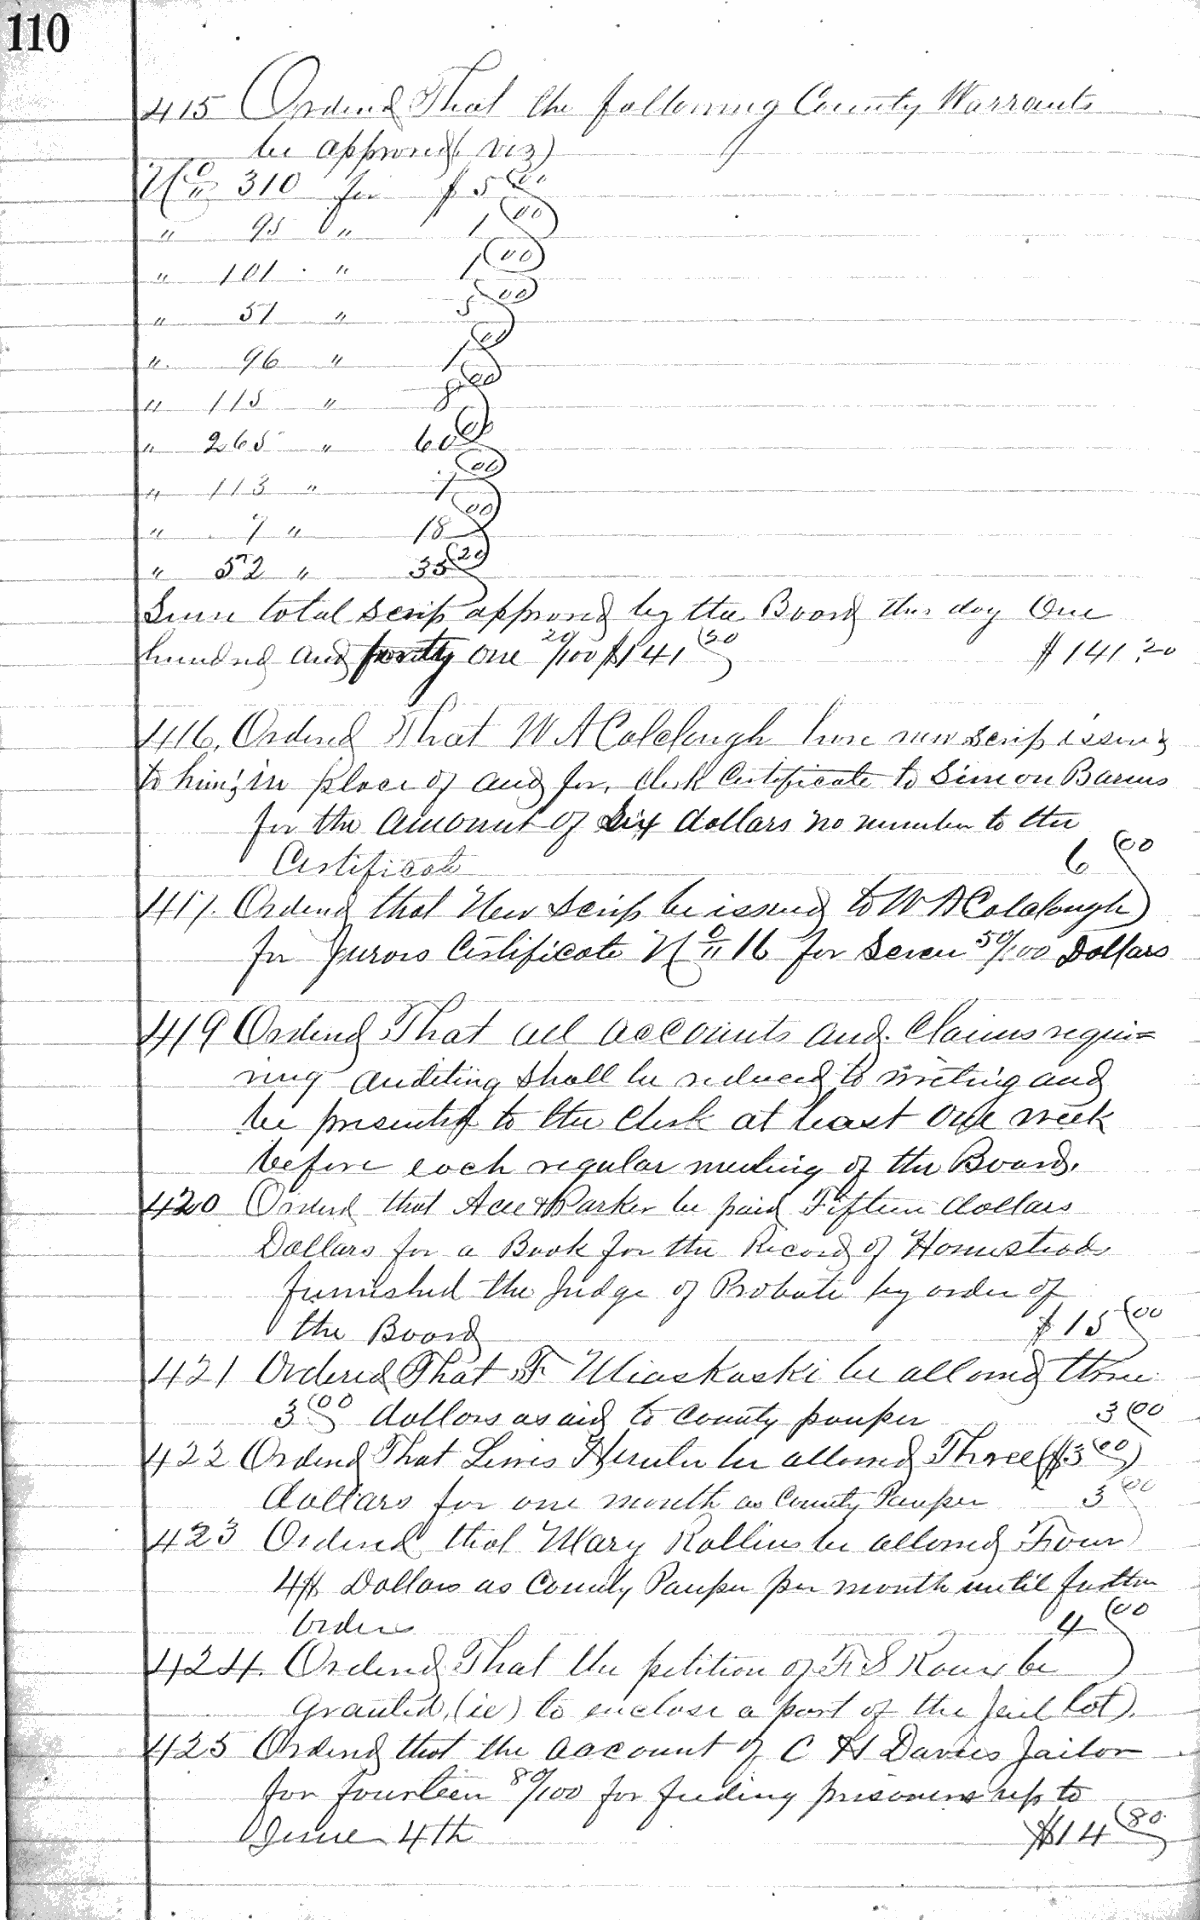 110
415 Ordered That the following County Warrants
be approved (viz)
No 310 for $5 00
" 95 " 1 00
" 101 " 1 00
" 51 " 5 00
" 96 " 1 00
" 115 " 8 00
" 265 " 60 00
" 113 " 7 00
" 7 " 18 00
" 52 " 35 20
Sum total scrip approved by the Board this day One
hundred and forty one 20/100 $141 20 $141 20
416. Ordered That W A Colclough have new scrip issued
to him; in place of and for, Clerk Certificate to Simon Barnes
for the amount of Six dollars no number to the
Certificate 6 00
417. Ordered that New Scrip be issued to W A Colclough
for Jurors Certificate No 16 for Seven 50/100 Dollars
419 Ordered That all accounts and Claims requi=
ring auditing shall be reduced to writing and
be presented to the Clerk at least One week
before each regular meeting of the Board.
420 Ordered that Ace & Parker be paid Fifteen dollars
Dollars for a Book for the Record of Homesteads
furnished the Judge of Probate by order of
the Board $15 00
421 Ordered That F. Miaskaski be allowed three
3 00 dollars as aid to County pauper 3 00
422 Ordered That Lewis be allowed Three ($3 00)
dollars for one month as County Pauper 3 00
423 Ordered that Mary Rollins be allowed Four
4$ Dollars as County Pauper per month until further
orders 4 00
424. Ordered That the petition of F S Roux be
Granted, (ie) to enclose a part of the Jail Lot).
425 Ordered that the account of C H Davies Jailor
for fourteen 80/100 for feeding prisoners up to
June 4th $14 80